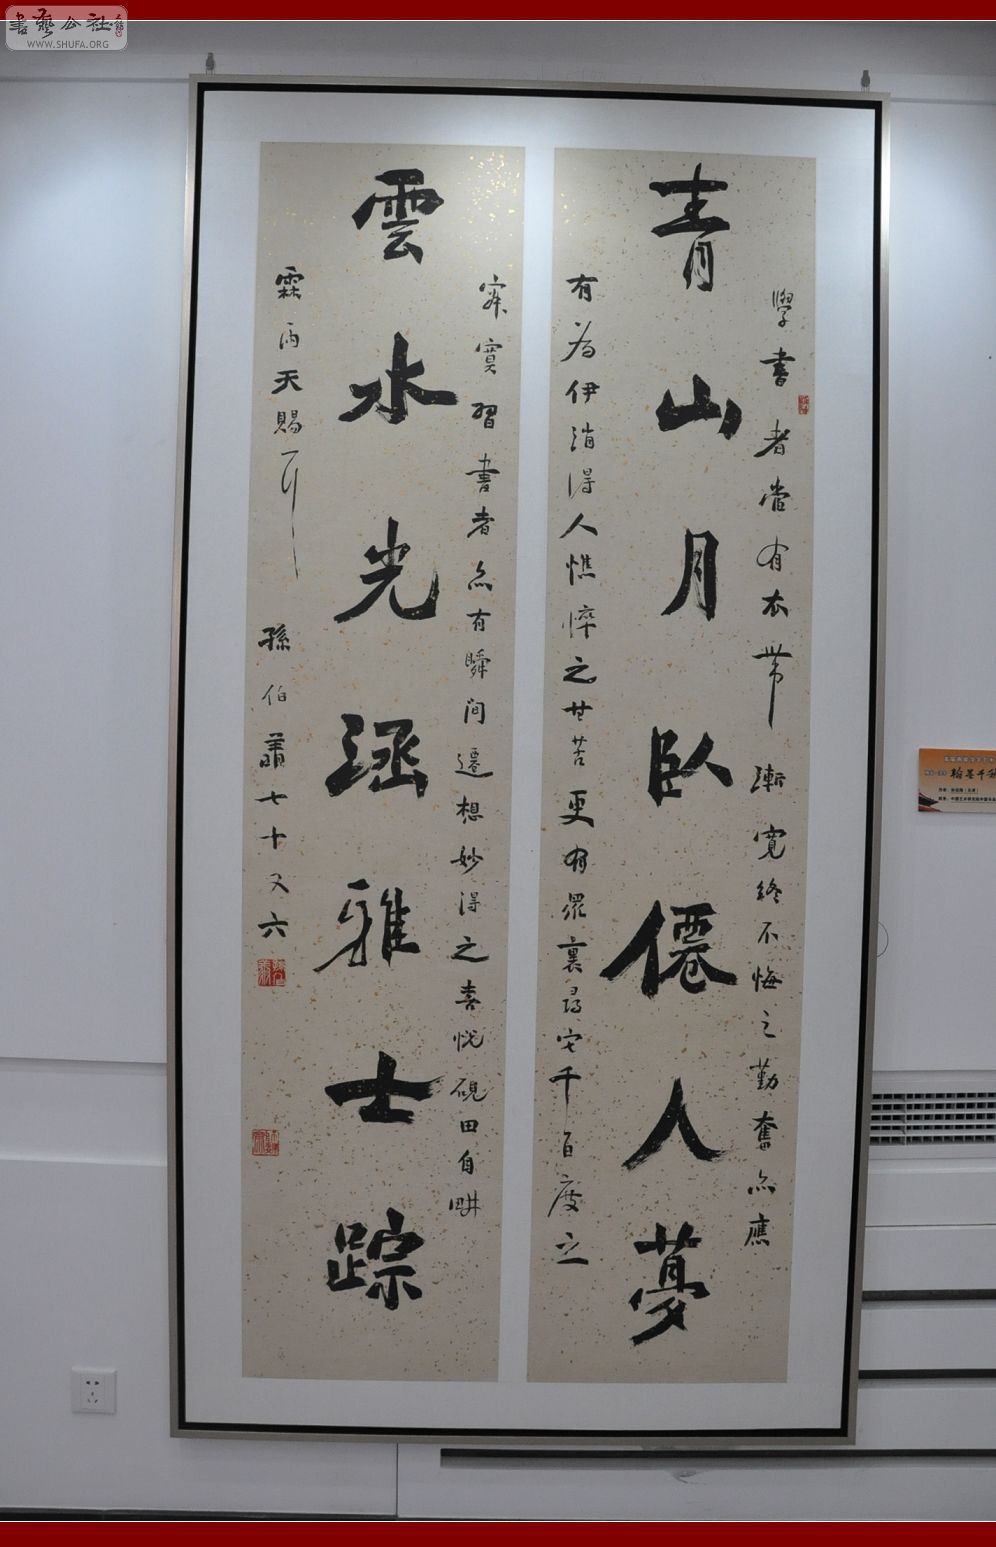 書藝公社
WWW.SHUFA.ORG
學書者當有衣帶漸寬終不悔之勤奮亦應
青山月臥僊人夢
有為伊消得人憔悴之甘苦更有眾裏尋它千百度之
寂寞習書者亦有瞬间遷想妙得之喜悦硯田自畊
雲水光涵雅士踪
霖雨天賜
孫伯翥七十又六
翰墨千秋